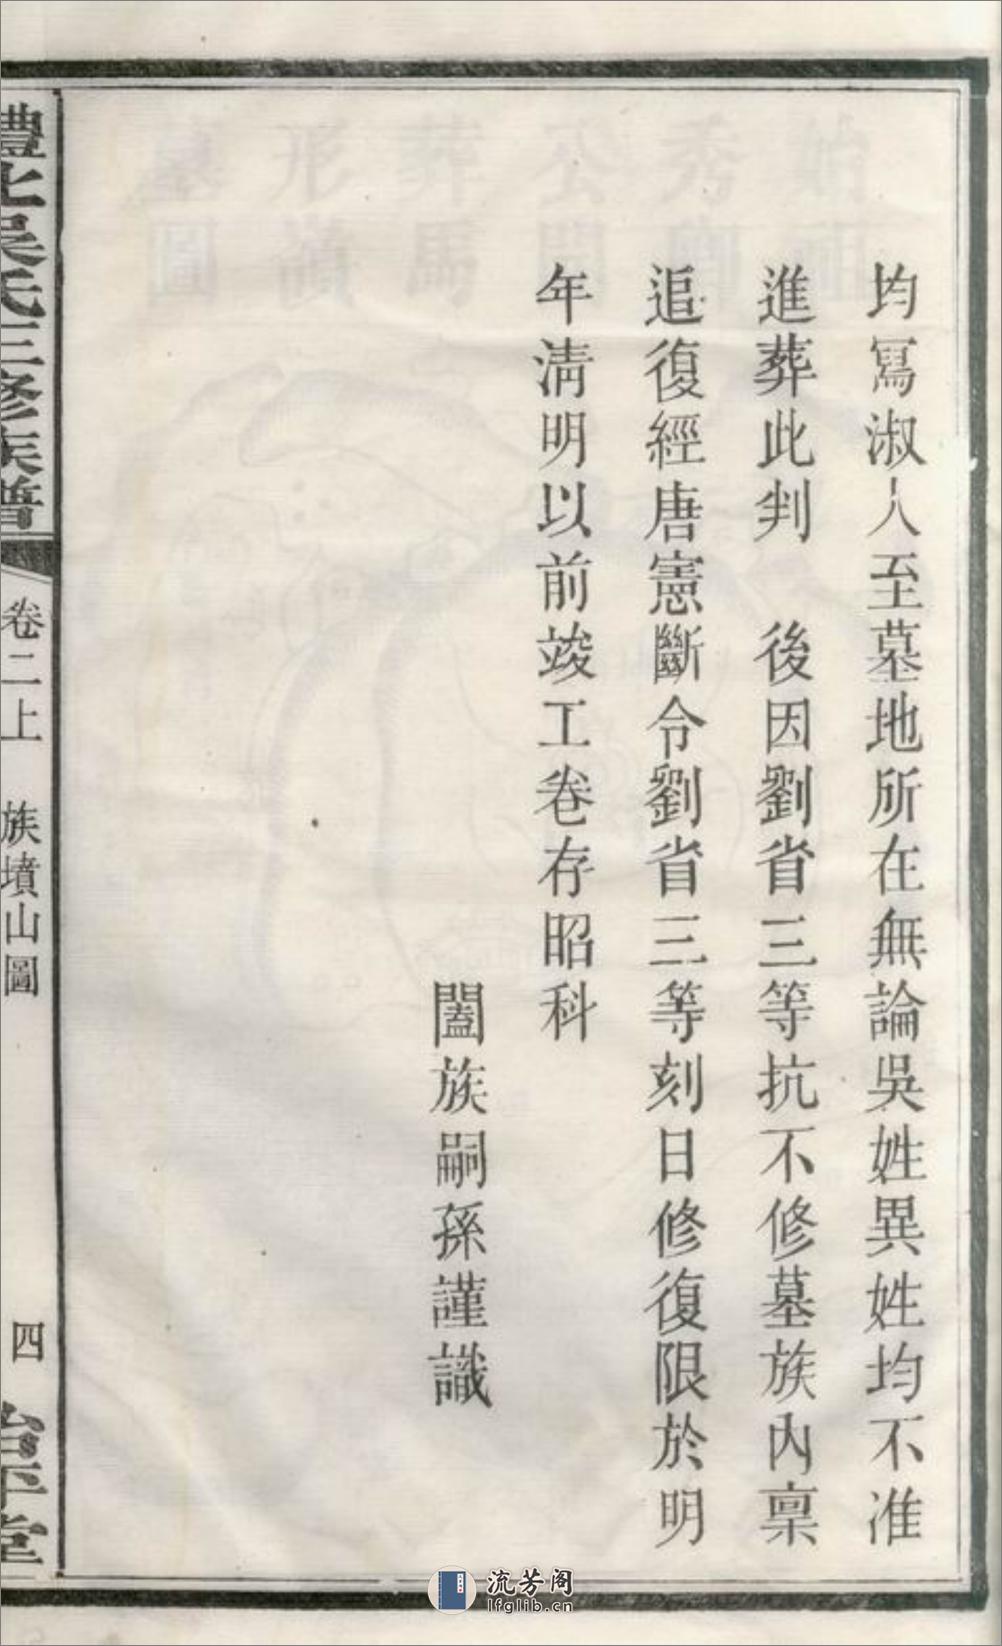 均寫淑人至墓地所在無論吳姓異姓均不准
進葬此判　後因劉省三等抗不修墓族內稟
追復經唐憲斷令劉省三等刻日修復限於明
年清明以前竣工卷存昭科
闔族嗣孫謹識
澧北吳氏三修族譜
卷二上　族墳山圖
四
治平堂
流芳阁
lfglib.cn